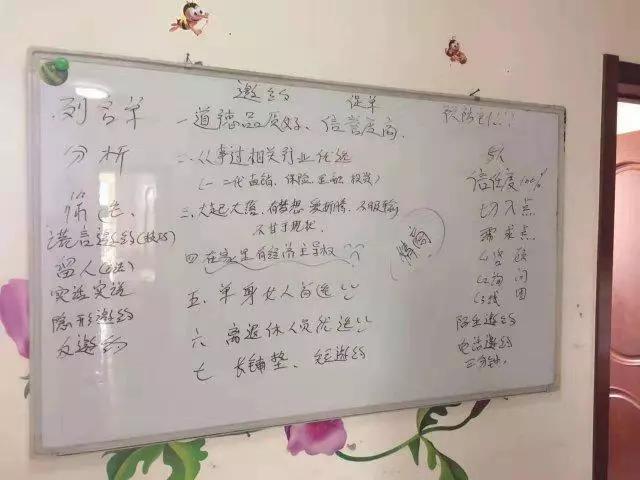 列名单
分析
筛选
谎言邀约(技巧)
留人(方法)
实话实说
隐形邀约
反邀约
邀约
促单
一道德品质好、信誉度高.
二、从事过相关行业优选
(一二代直销、保险、金融、投资)
三、大起大落、有梦想、爱折腾、不服输
不甘于现状.
四.在家里有经济主导权
五.单身女人首选
六 离退休人员优选
七 长铺垫、短邀约
信任度100%
切入点
需求点
陌生邀约
电话邀约
三分钟.